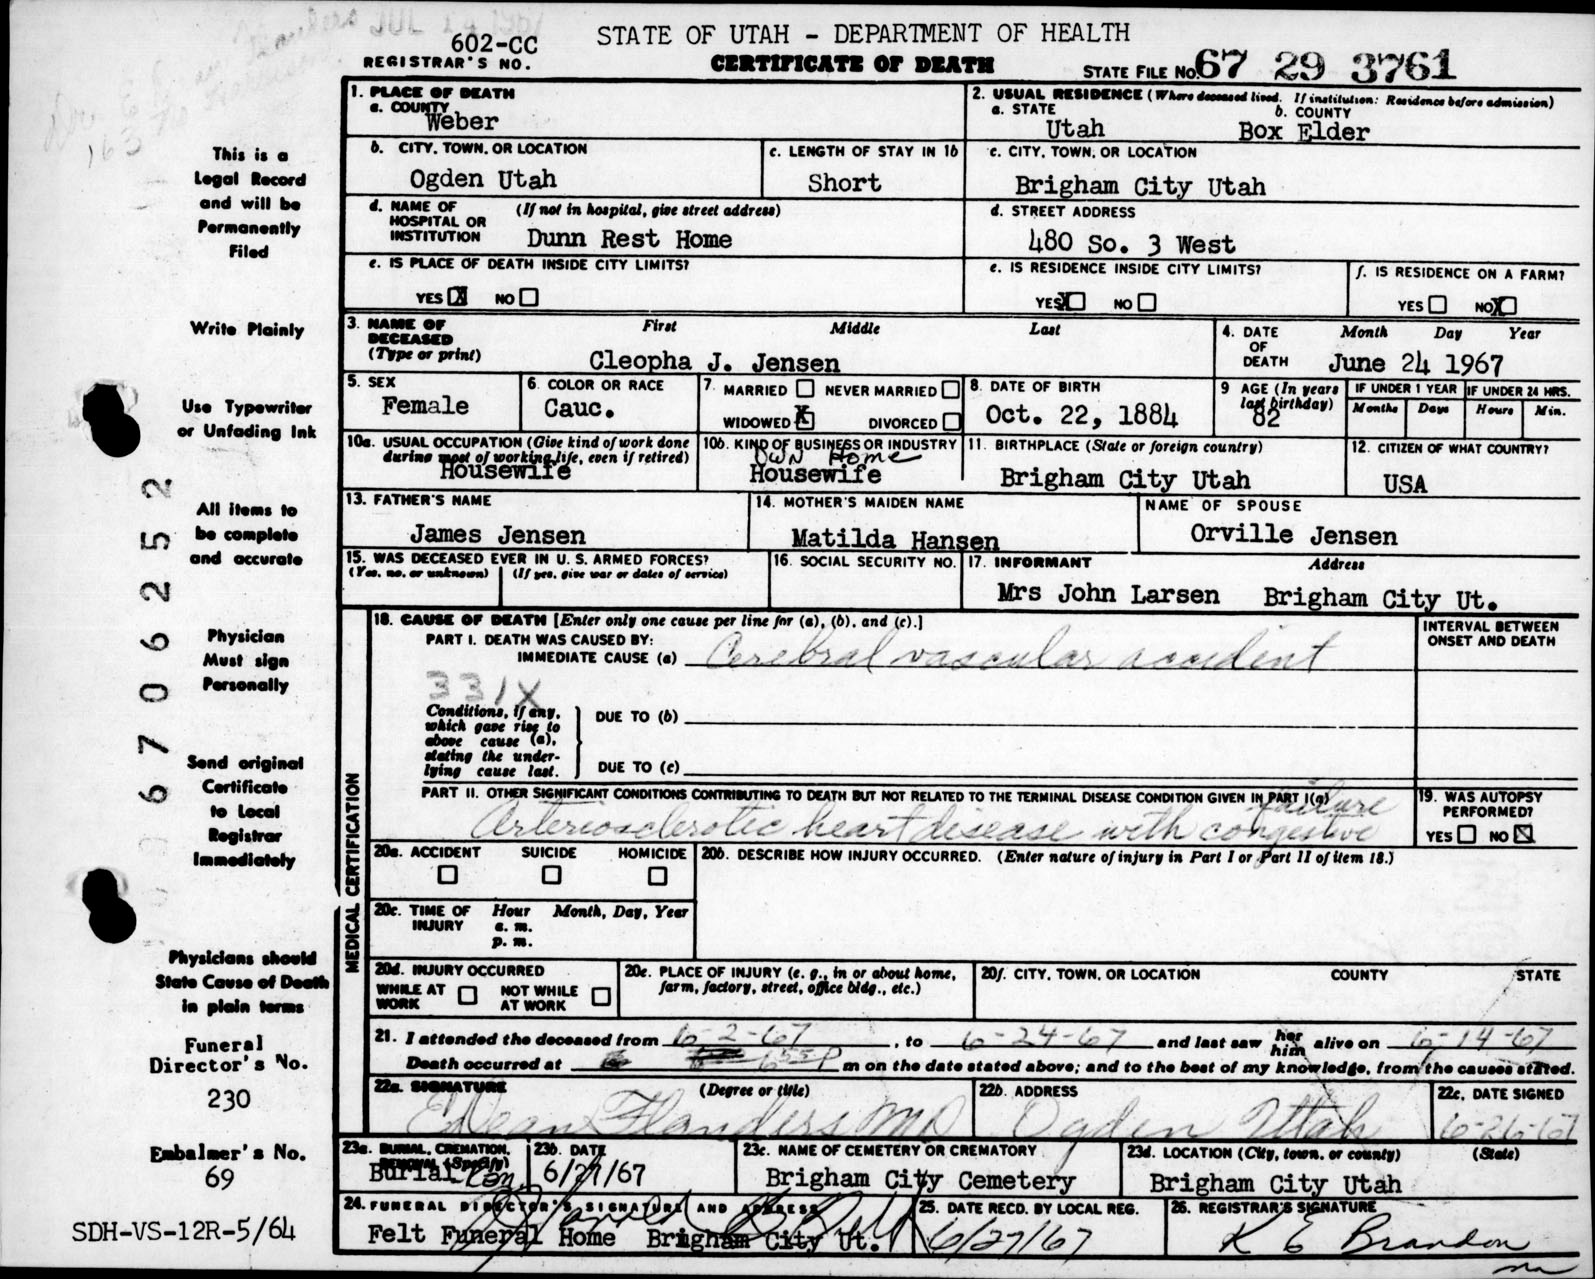 JUL
602-CC
REGISTRAR'S NO.
STATE OF UTAH - DEPARTMENT OF HEALTH
CERTIFICATE OF DEATH
STATE FILE NO. 67 29 3761
163
This is a
Legal Record
and will be
Permanently
Filed
Write Plainly
Use Typewriter
or Unfading Ink
All items to
be complete
and accurate
Physician
Must sign
Personally
Send original
Certificate
to Local
Registrar
Immediately
Physicians should
State Cause of Death
in plain terms
Funeral
Director's No.
230
Embalmer's No.
69
SDH-VS-12R-5/64
67062552
1. PLACE OF DEATH
a. COUNTY
Weber
2. USUAL RESIDENCE (Where deceased lived. If institution: Residence before admission)
a. STATE b. COUNTY
Utah Box Elder
b. CITY, TOWN, OR LOCATION
Ogden Utah
c. LENGTH OF STAY IN 1b
Short
c. CITY, TOWN, OR LOCATION
Brigham City Utah
d. NAME OF HOSPITAL OR INSTITUTION (If not in hospital, give street address)
Dunn Rest Home
d. STREET ADDRESS
480 So. 3 West
e. IS PLACE OF DEATH INSIDE CITY LIMITS?
YES X NO
e. IS RESIDENCE INSIDE CITY LIMITS?
YES X NO
f. IS RESIDENCE ON A FARM?
YES NO X
3. NAME OF DECEASED (Type or print) First Middle Last
Cleopha J. Jensen
4. DATE OF DEATH Month Day Year
June 24 1967
5. SEX
Female
6. COLOR OR RACE
Cauc.
7. MARRIED NEVER MARRIED
WIDOWED X DIVORCED
8. DATE OF BIRTH
Oct. 22, 1884
9 AGE (In years last birthday)
82
IF UNDER 1 YEAR IF UNDER 24 HRS.
Months Days Hours Min.
10a. USUAL OCCUPATION (Give kind of work done during most of working life, even if retired)
Housewife
10b. KIND OF BUSINESS OR INDUSTRY
Own Home
Housewife
11. BIRTHPLACE (State or foreign country)
Brigham City Utah
12. CITIZEN OF WHAT COUNTRY?
USA
13. FATHER'S NAME
James Jensen
14. MOTHER'S MAIDEN NAME
Matilda Hansen
NAME OF SPOUSE
Orville Jensen
15. WAS DECEASED EVER IN U. S. ARMED FORCES?
(Yes, no, or unknown) (If yes, give war or dates of service)
16. SOCIAL SECURITY NO.
17. INFORMANT Address
Mrs John Larsen Brigham City Ut.
MEDICAL CERTIFICATION
18. CAUSE OF DEATH [Enter only one cause per line for (a), (b), and (c).]
PART I. DEATH WAS CAUSED BY:
IMMEDIATE CAUSE (a) Cerebral vascular accident
INTERVAL BETWEEN ONSET AND DEATH
331X
Conditions, if any, which gave rise to above cause (a), stating the underlying cause last.
DUE TO (b)
DUE TO (c)
PART II. OTHER SIGNIFICANT CONDITIONS CONTRIBUTING TO DEATH BUT NOT RELATED TO THE TERMINAL DISEASE CONDITION GIVEN IN PART I(a)
Arteriosclerotic heart disease with congestive failure
19. WAS AUTOPSY PERFORMED?
YES NO X
20a. ACCIDENT SUICIDE HOMICIDE
20b. DESCRIBE HOW INJURY OCCURRED. (Enter nature of injury in Part I or Part II of item 18.)
20c. TIME OF INJURY Hour Month, Day, Year
a. m.
p. m.
20d. INJURY OCCURRED
WHILE AT WORK NOT WHILE AT WORK
20e. PLACE OF INJURY (e. g., in or about home, farm, factory, street, office bldg., etc.)
20f. CITY, TOWN, OR LOCATION COUNTY STATE
21. I attended the deceased from 6-2-67, to 6-24-67 and last saw her him alive on 6-14-67
Death occurred at 6 55 P m on the date stated above; and to the best of my knowledge, from the causes stated.
22a. SIGNATURE (Degree or title)
E Dean Flanders MD
22b. ADDRESS
Ogden Utah
22c. DATE SIGNED
6-26-67
23a. BURIAL, CREMATION, REMOVAL (Specify)
Burial
23b. DATE
6/27/67
23c. NAME OF CEMETERY OR CREMATORY
Brigham City Cemetery
23d. LOCATION (City, town, or county) (State)
Brigham City Utah
24. FUNERAL DIRECTOR'S SIGNATURE AND ADDRESS
Felt Funeral Home Brigham City Ut.
25. DATE RECD. BY LOCAL REG.
6/27/67
26. REGISTRAR'S SIGNATURE
K E Brandon